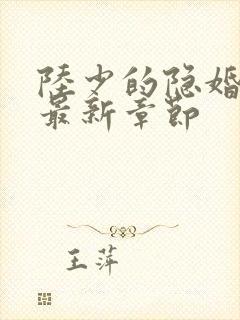 陸少的隐婚
最新章節
王萍